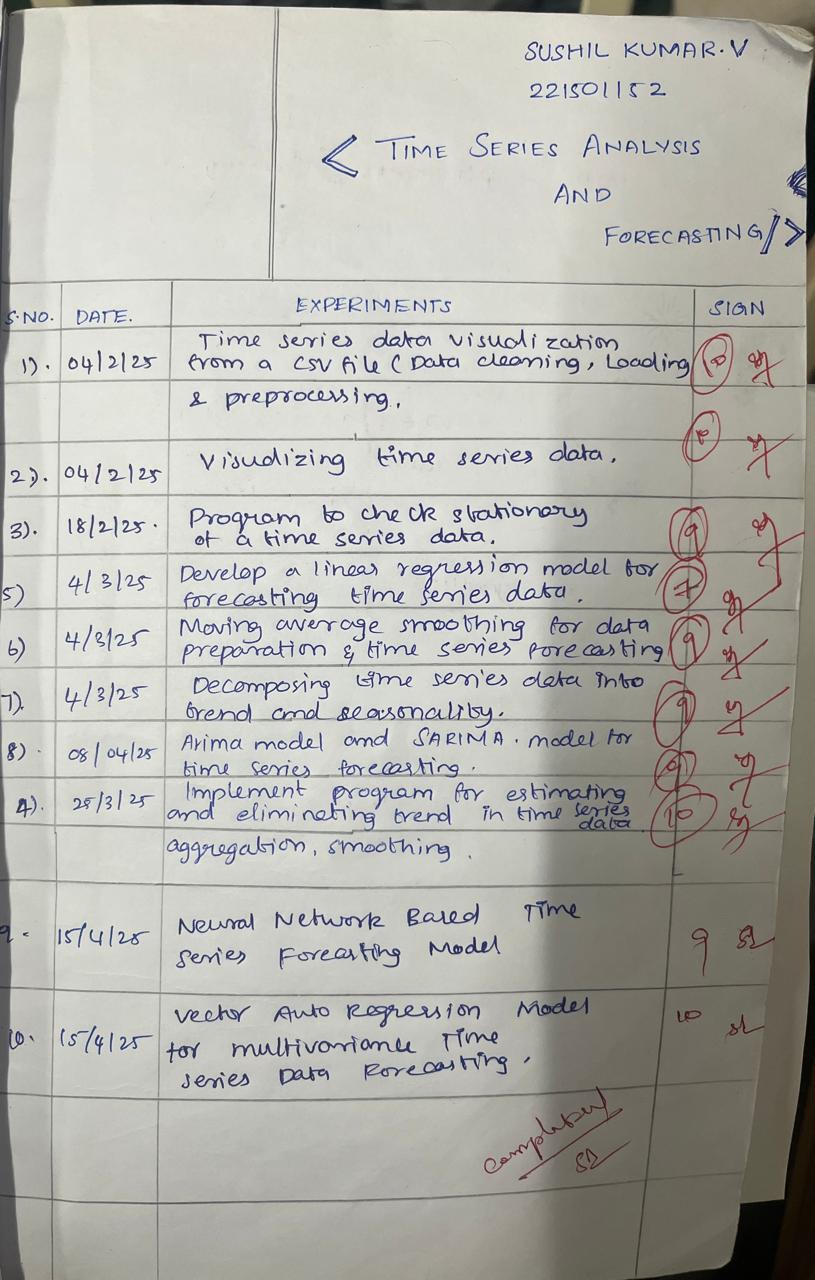 SUSHIL KUMAR.V
221501152
< TIME SERIES ANALYSIS
AND
FORECASTING/>
S.NO. DATE. EXPERIMENTS SIGN
1). 04/2/25 Time series data visualization
from a CSV file ( Data cleaning, Loading
& preprocessing.
2). 04/2/25 Visualizing time series data.
3). 18/2/25. Program to check stationary
of a time series data. 9
5) 4/3/25 Develop a linear regression model for
forecasting time series data. 7
6) 4/3/25 Moving average smoothing for data
preparation & time series forecasting 9
7). 4/3/25 Decomposing time series data into
trend and seasonality. 9
8). 08/04/25 Arima model and SARIMA. model for
time series forecasting. 9
4). 25/3/25 Implement program for estimating
and eliminating trend in time series data 10
aggregation, smoothing.
9. 15/4/25 Neural Network Based Time
Series Forecasting Model 9
10. 15/4/25 Vector Auto Regression Model 10
for multivariance Time
series Data Forecasting.
completed